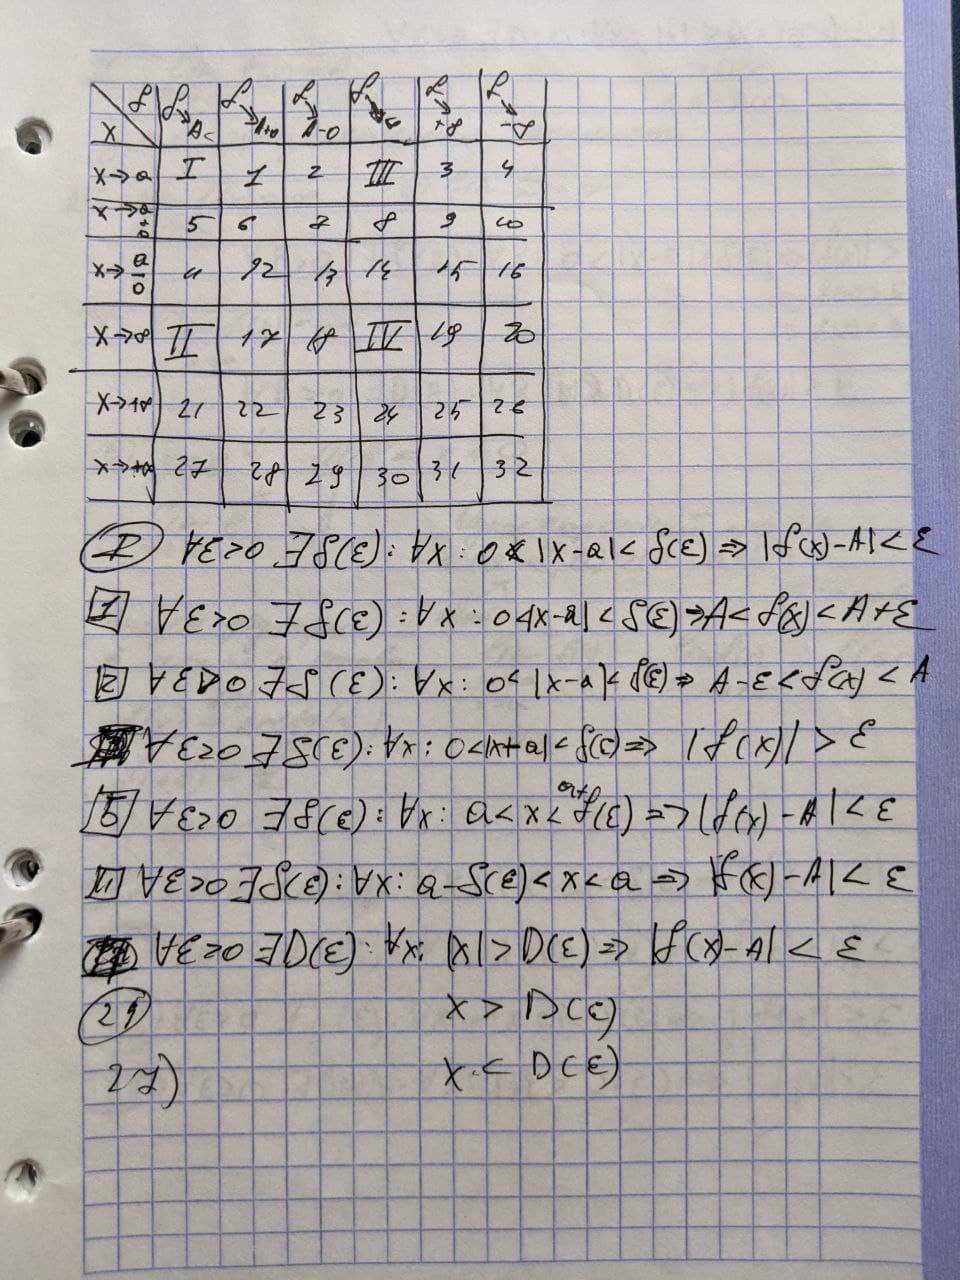 x f f→A f→A+0 f→A-0 f→∞ f→+∞ f→-∞
x→a I 1 2 III 3 4
x→a+0 5 6 7 8 9 10
x→a-0 11 12 13 14 15 16
x→∞ II 17 18 IV 19 20
x→+∞ 21 22 23 24 25 26
x→+∞ 27 28 29 30 31 32
I ∀ε>0 ∃δ(ε): ∀x: 0<|x-a|<δ(ε) ⇒ |f(x)-A|<ε
1 ∀ε>0 ∃δ(ε): ∀x: 0<|x-a|<δ(ε) ⇒ A<f(x)<A+ε
2 ∀ε>0 ∃δ(ε): ∀x: 0<|x-a|<δ(ε) ⇒ A-ε<f(x)<A
∀ε>0 ∃δ(ε): ∀x: 0<|x+a|<δ(ε) ⇒ |f(x)|>ε
5 ∀ε>0 ∃δ(ε): ∀x: a<x<a+δ(ε) ⇒ |f(x)-A|<ε
11 ∀ε>0 ∃δ(ε): ∀x: a-δ(ε)<x<a ⇒ |f(x)-A|<ε
∀ε>0 ∃D(ε): ∀x: |x|>D(ε) ⇒ |f(x)-A|<ε
21 x>D(ε)
27) x<D(ε)